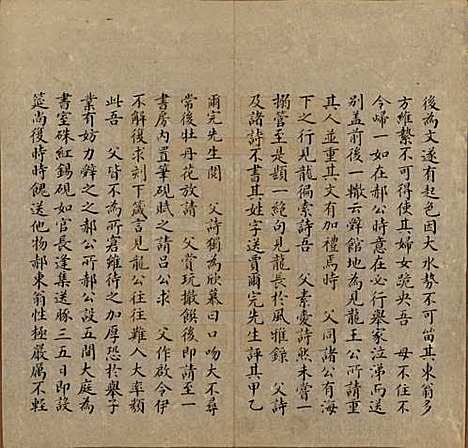 後為文遂有起色因大水勢不可留其東翁多
方維繫不可得使其婦女跪央吾　母不住不
今歸一如在郝公時意在必行舉家泣涕而送
別蓋前後一轍云舜館地為見龍王公所請重
其人並重其文有加禮焉時　父同諸公有海
下之行見龍徧索詩吾　父素愛詩然未嘗一
搦管至是題一絶句見龍長於風雅錄　父詩
及諸詩不書其姓字送賈爾完先生評其甲乙
爾完先生閱　父詩獨為欣羨曰口吻大不尋
常後牡丹花放請　父賞玩撤饌後即請至一
書房內置筆硯賦之請呂公求　父作啟令伊
不解後求刻下箴言見龍公往往難人大率類
此吾　父皆不為所窘維待之加厚恐於舉子
業有妨力辭之之郝公所郝公設五間大庭為
書室硃紅錫硯如官長逢集送豚三五日即設
筵尚後時時餽送他物郝東翁性極嚴厲不輕